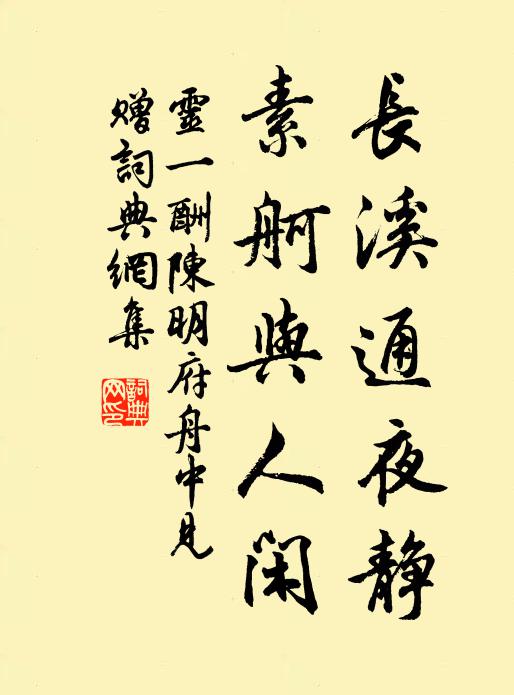 長溪通夜静
素舸與人閑
靈一酬陳明府舟中見
贈詞典網集
詞典
网印